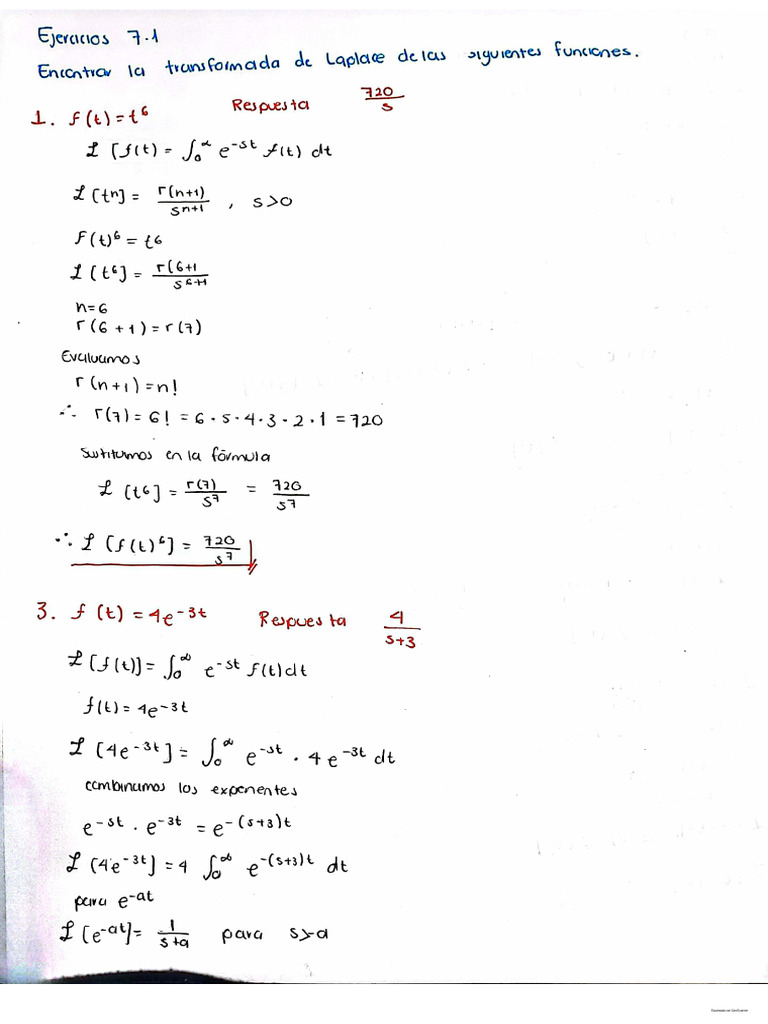 Ejercicios 7.1
Encontrar la transformada de Laplace de las siguientes funciones.
1. f(t)=t⁶ Respuesta 720/s
ℒ [f(t) = ∫₀^∞ e^-st f(t) dt
ℒ [tⁿ] = r(n+1)/s^n+1 , s>0
f(t)⁶ = t⁶
ℒ [t⁶] = r(6+1/s^6+1
n=6
r(6+1)=r(7)
Evaluamos
r(n+1)=n!
∴ r(7)=6! = 6·5·4·3·2·1 = 720
Sustituimos en la fórmula
ℒ [t⁶] = r(7)/s⁷ = 720/s⁷
∴ ℒ [f(t)⁶] = 720/s⁷
3. f(t) = 4e^-3t Respuesta 4/s+3
ℒ [f(t)] = ∫₀^∞ e^-st f(t)dt
f(t) = 4e^-3t
ℒ [4e^-3t] = ∫₀^∞ e^-st · 4e^-3t dt
combinamos los exponentes
e^-st · e^-3t = e^-(s+3)t
ℒ [4e^-3t] = 4 ∫₀^∞ e^-(s+3)t dt
para e^-at
ℒ [e^-at] = 1/s+a para s>-a